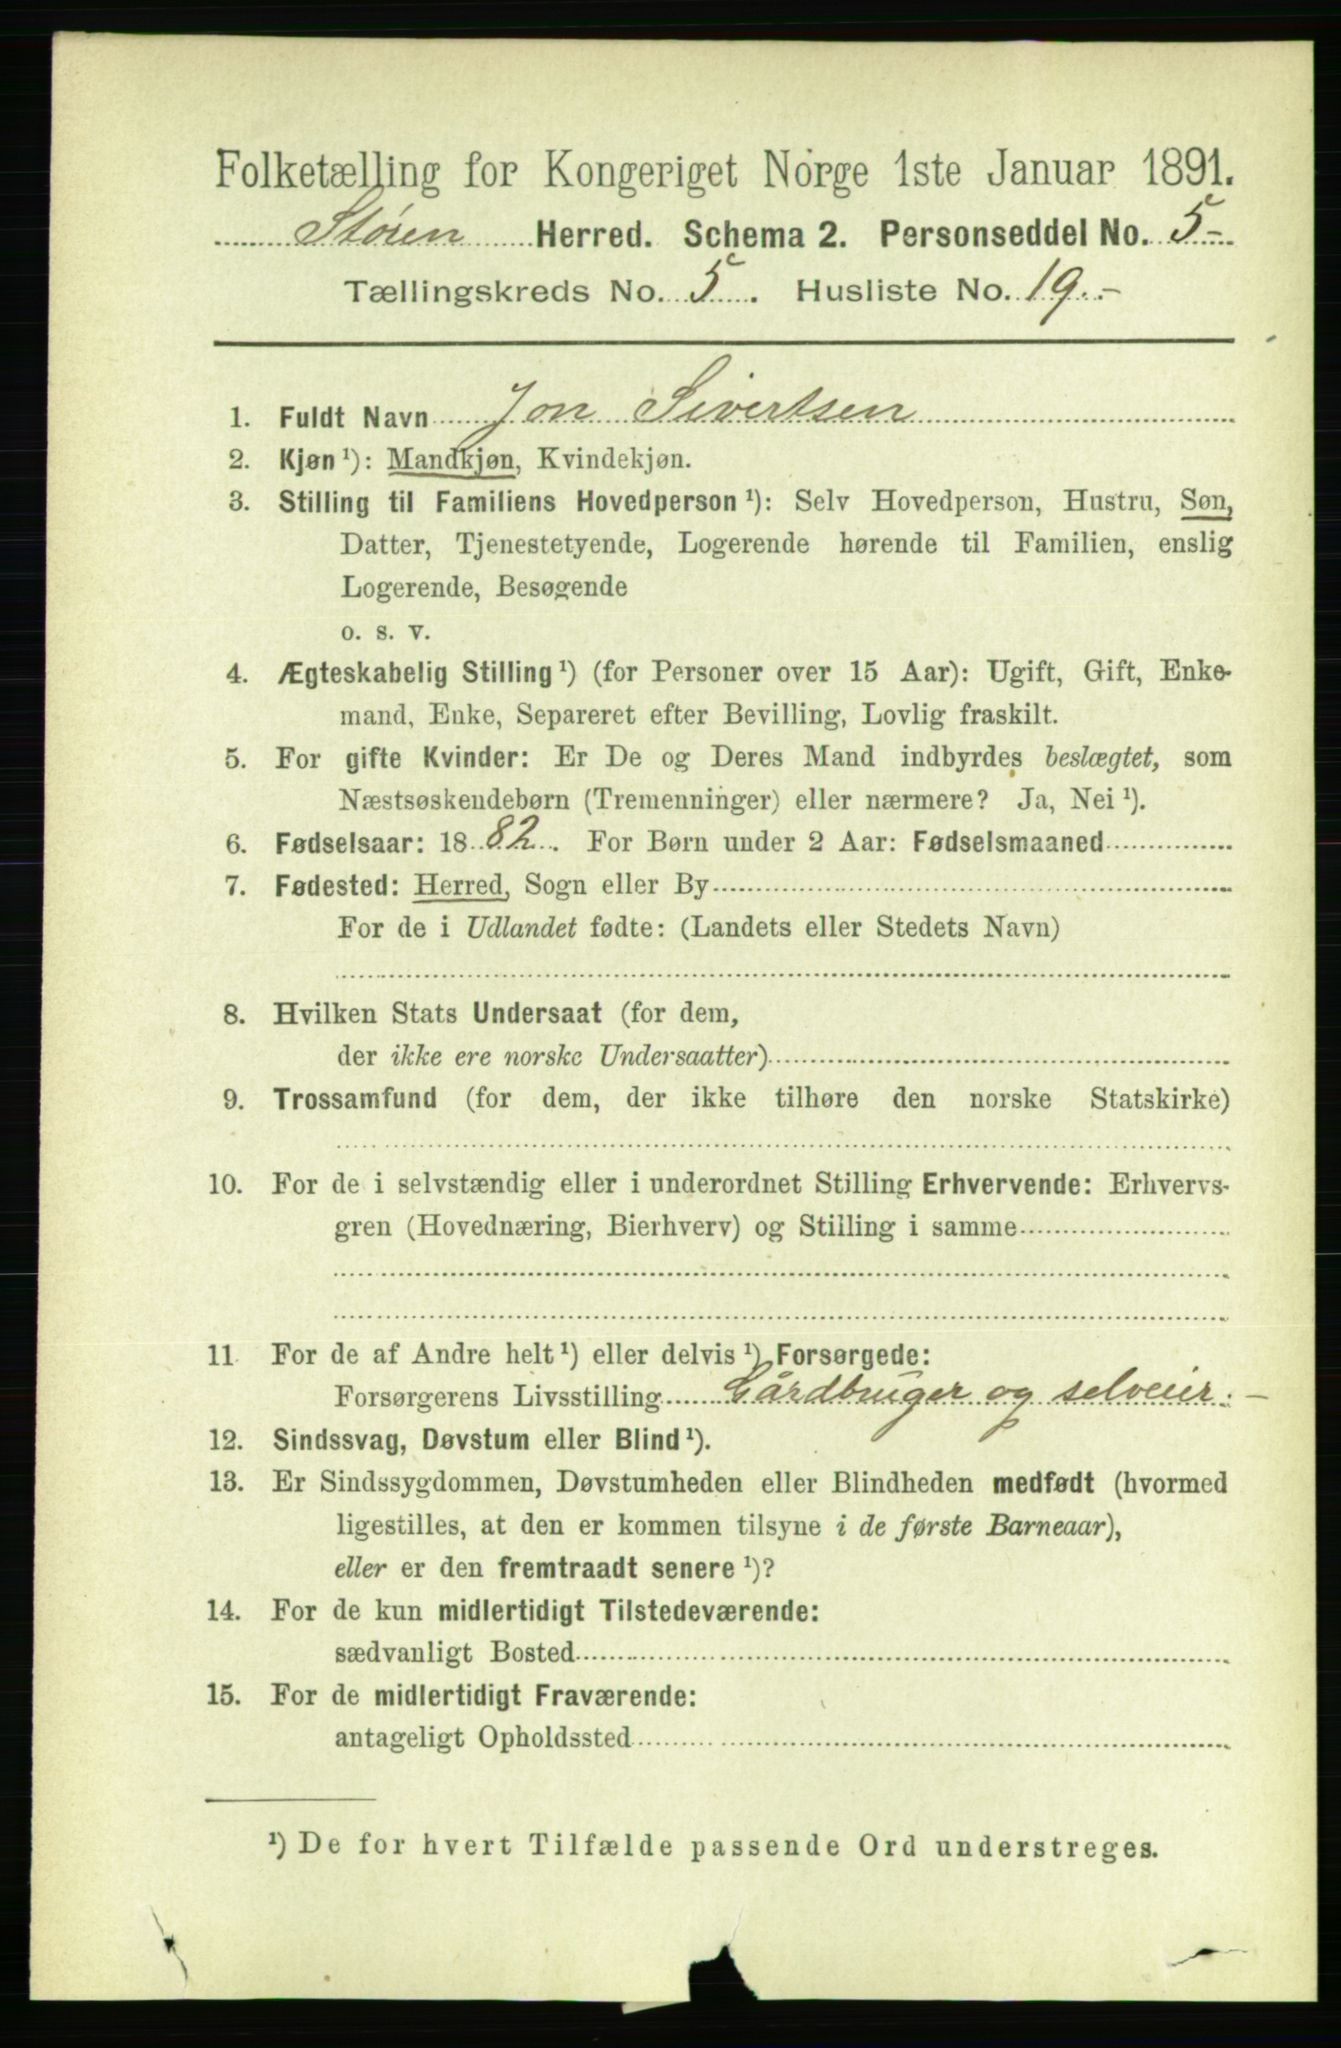 Folketælling for Kongeriget Norge 1ste Januar 1891.
Støren Herred. Schema 2. Personseddel No. 5-
Tællingskreds No. 5. Husliste No. 19.-
1. Fuldt Navn Jon Sivertsen
2. Kjøn¹): Mandkjøn, Kvindekjøn.
3. Stilling til Familiens Hovedperson¹): Selv Hovedperson, Hustru, Søn,
Datter, Tjenestetyende, Logerende hørende til Familien, enslig
Logerende, Besøgende
o. s. v.
4. Ægteskabelig Stilling¹) (for Personer over 15 Aar): Ugift, Gift, Enke-
mand, Enke, Separeret efter Bevilling, Lovlig fraskilt.
5. For gifte Kvinder: Er De og Deres Mand indbyrdes beslægtet, som
Næstsøskendebørn (Tremenninger) eller nærmere? Ja, Nei¹).
6. Fødselsaar: 1882. For Børn under 2 Aar: Fødselsmaaned
7. Fødested: Herred, Sogn eller By
For de i Udlandet fødte: (Landets eller Stedets Navn)
8. Hvilken Stats Undersaat (for dem,
der ikke ere norske Undersaatter)
9. Trossamfund (for dem, der ikke tilhøre den norske Statskirke)
10. For de i selvstændig eller i underordnet Stilling Erhvervende: Erhvervs-
gren (Hovednæring, Bierhverv) og Stilling i samme
11 For de af Andre helt¹) eller delvis¹) Forsørgede:
Forsørgerens Livsstilling Gårdbruger og selveier.-
12. Sindssvag, Døvstum eller Blind¹).
13. Er Sindssygdommen, Døvstumheden eller Blindheden medfødt (hvormed
ligestilles, at den er kommen tilsyne i de første Barneaar),
eller er den fremtraadt senere¹)?
14. For de kun midlertidigt Tilstedeværende:
sædvanligt Bosted
15. For de midlertidigt Fraværende:
antageligt Opholdssted
¹) De for hvert Tilfælde passende Ord understreges.